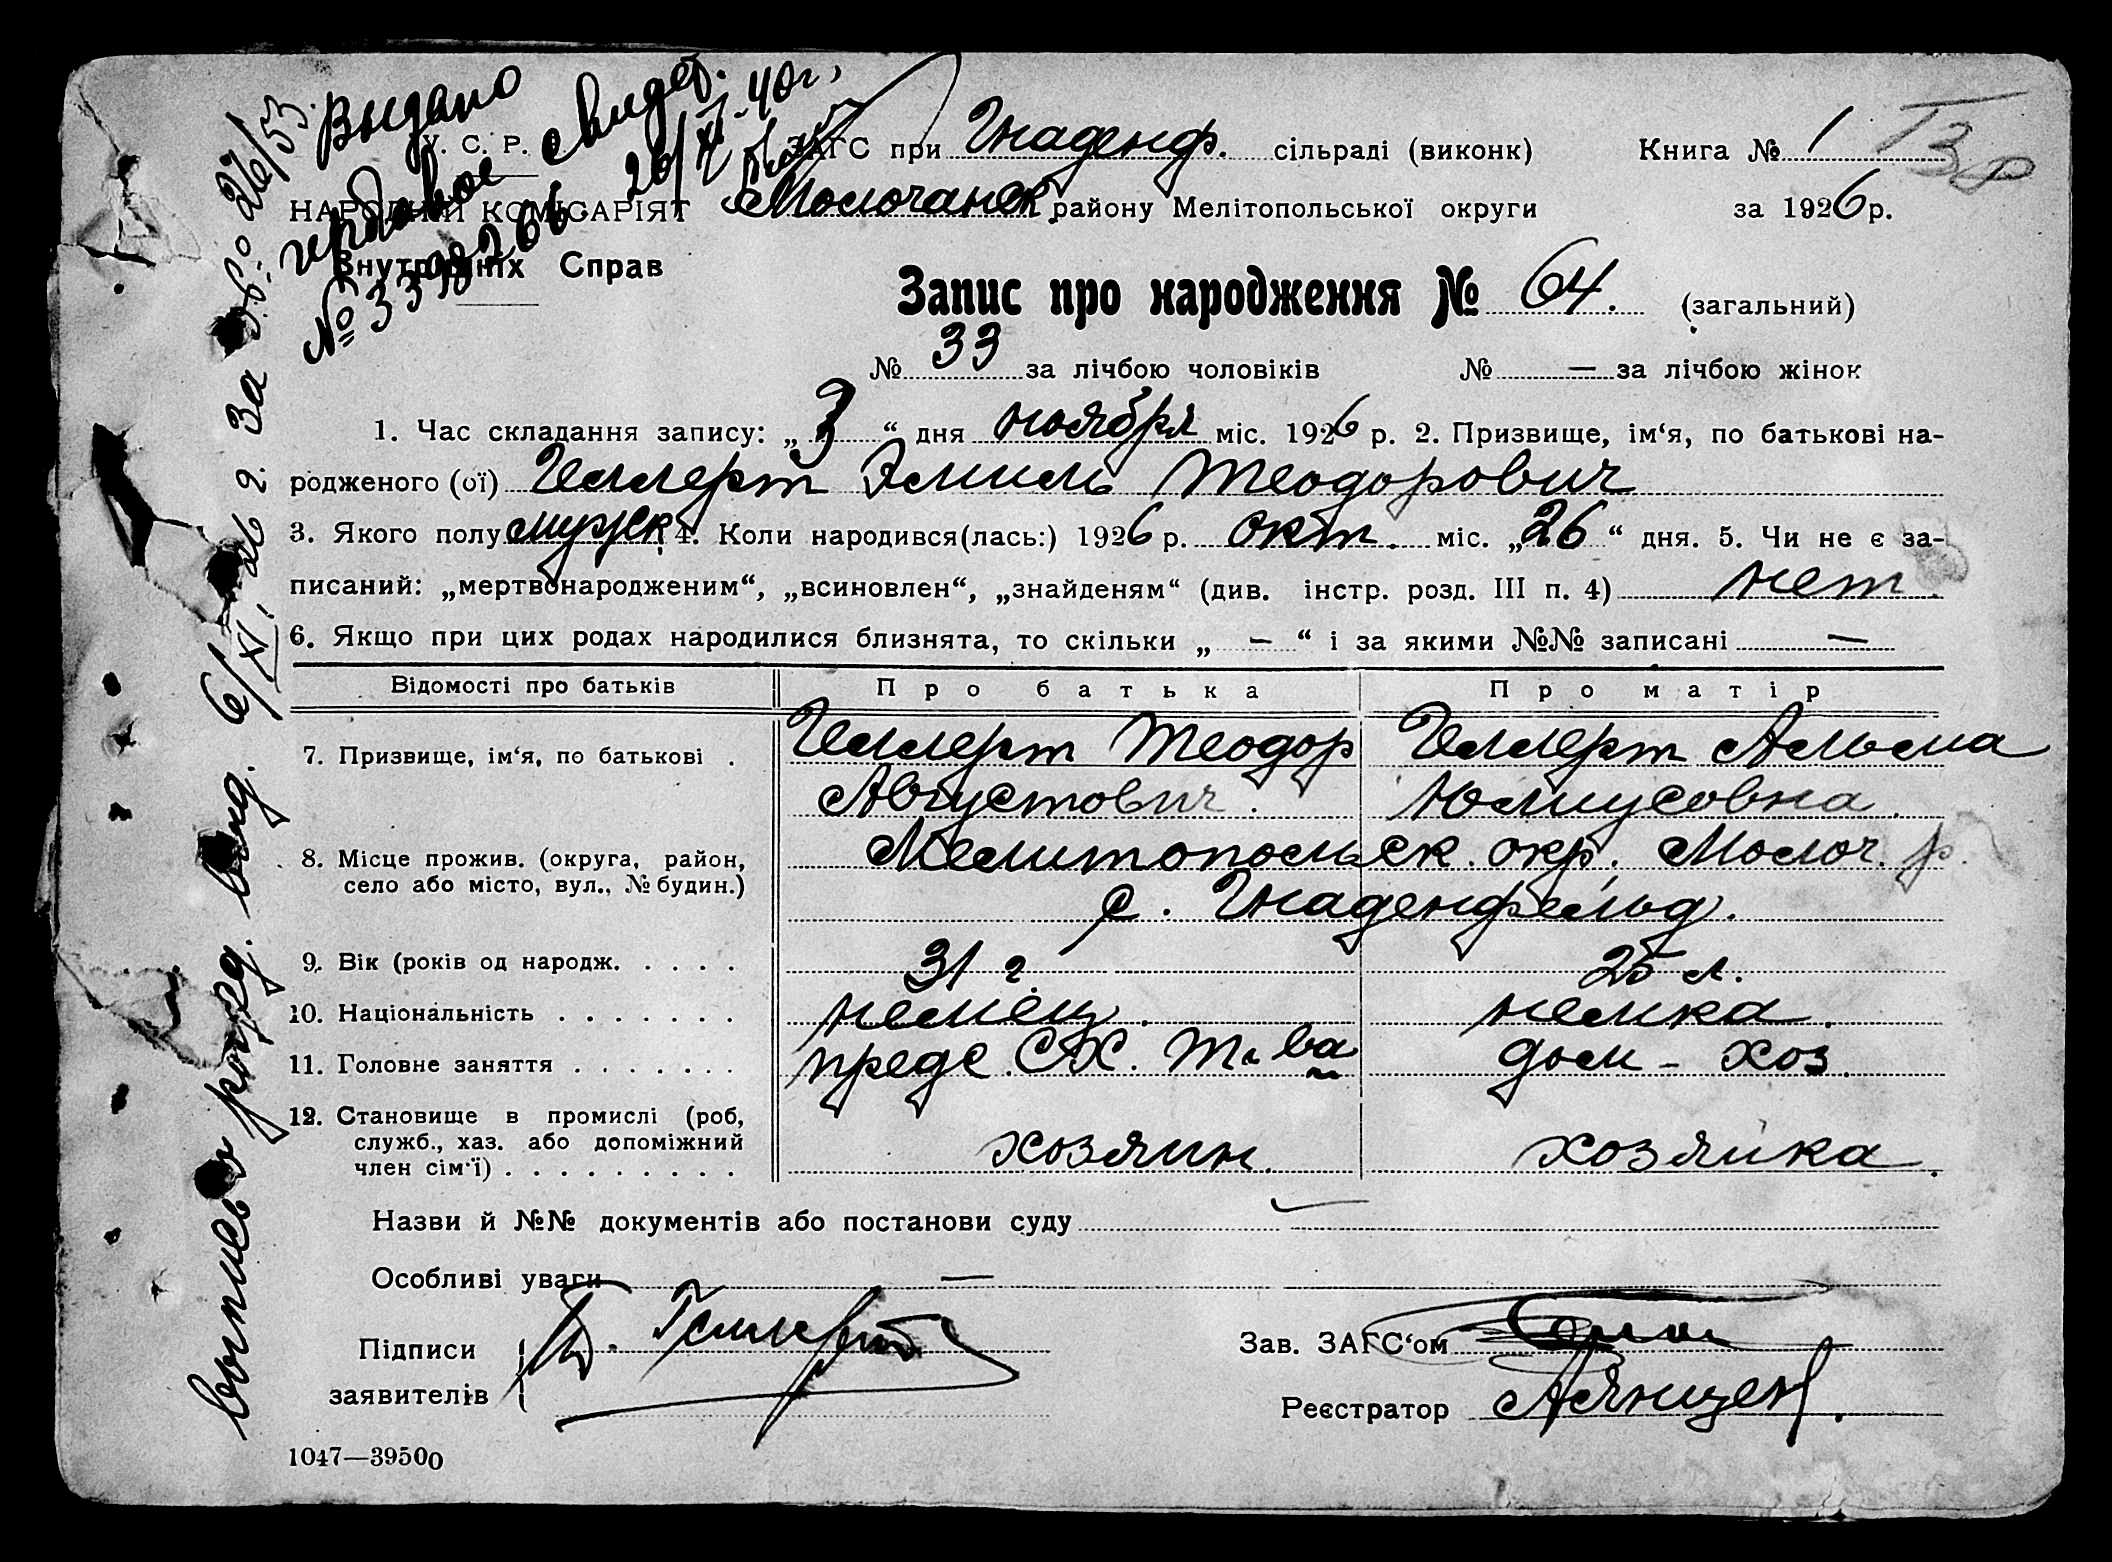 Выдано
гербовое свидет.
№ 3398266. 26/XI-40 г.,
У. С. Р. Р.
НАРОДНІЙ КОМІСАРІЯТ
Внутрішніх Справ
ЗАГС при Гнаденф. сільраді (виконк) Книга № 1
Молочанск району Мелітопольської округи за 1926 р.
Запис про народження № 64. (загальний)
№ 33 за лічбою чоловіків № — за лічбою жінок
1. Час складання запису: „ 3 “ дня ноября міс. 1926 р. 2. Призвище, ім‘я, по батькові на-
родженого (ої) Геллерт Эмиль Теодорович
3. Якого полу мужск. 4. Коли народився(лась:) 1926 р. окт. міс. „26“ дня. 5. Чи не є за-
писаний: „мертвонародженим“, „всиновлен“, „знайденям“ (див. інстр. розд. III п. 4) нет.
6. Якщо при цих родах народилися близнята, то скільки „ — “ і за якими №№ записані —
Відомості про батьків Про батька Про матір
7. Призвище, ім‘я, по батькові . Геллерт Теодор Геллерт Альма
Августович. Юлиусовна.
8. Місце прожив. (округа, район, Мелитопольск. окр. Молоч. р.
село або місто, вул., № будин.) с. Гнаденфельд.
9. Вік (років од народж. . . . . 31 г. 25 л.
10. Національність . . . . . . . немец. немка.
11. Головне заняття . . . . . . . предс. СХ. Т-ва дом - хоз.
12. Становище в промислі (роб,
служб., хаз. або допоміжний хозяин. хозяйка.
член сім‘ї) . . . . . . . . .
Назви й №№ документів або постанови суду —
Особливі уваги —
Підписи Т. Геллерт Зав. ЗАГС‘ом
заявителів Реєстратор А. Янцен.
1047—39500
выпись о рожд. выд. 6/XI. 26 г. за № 26/53.